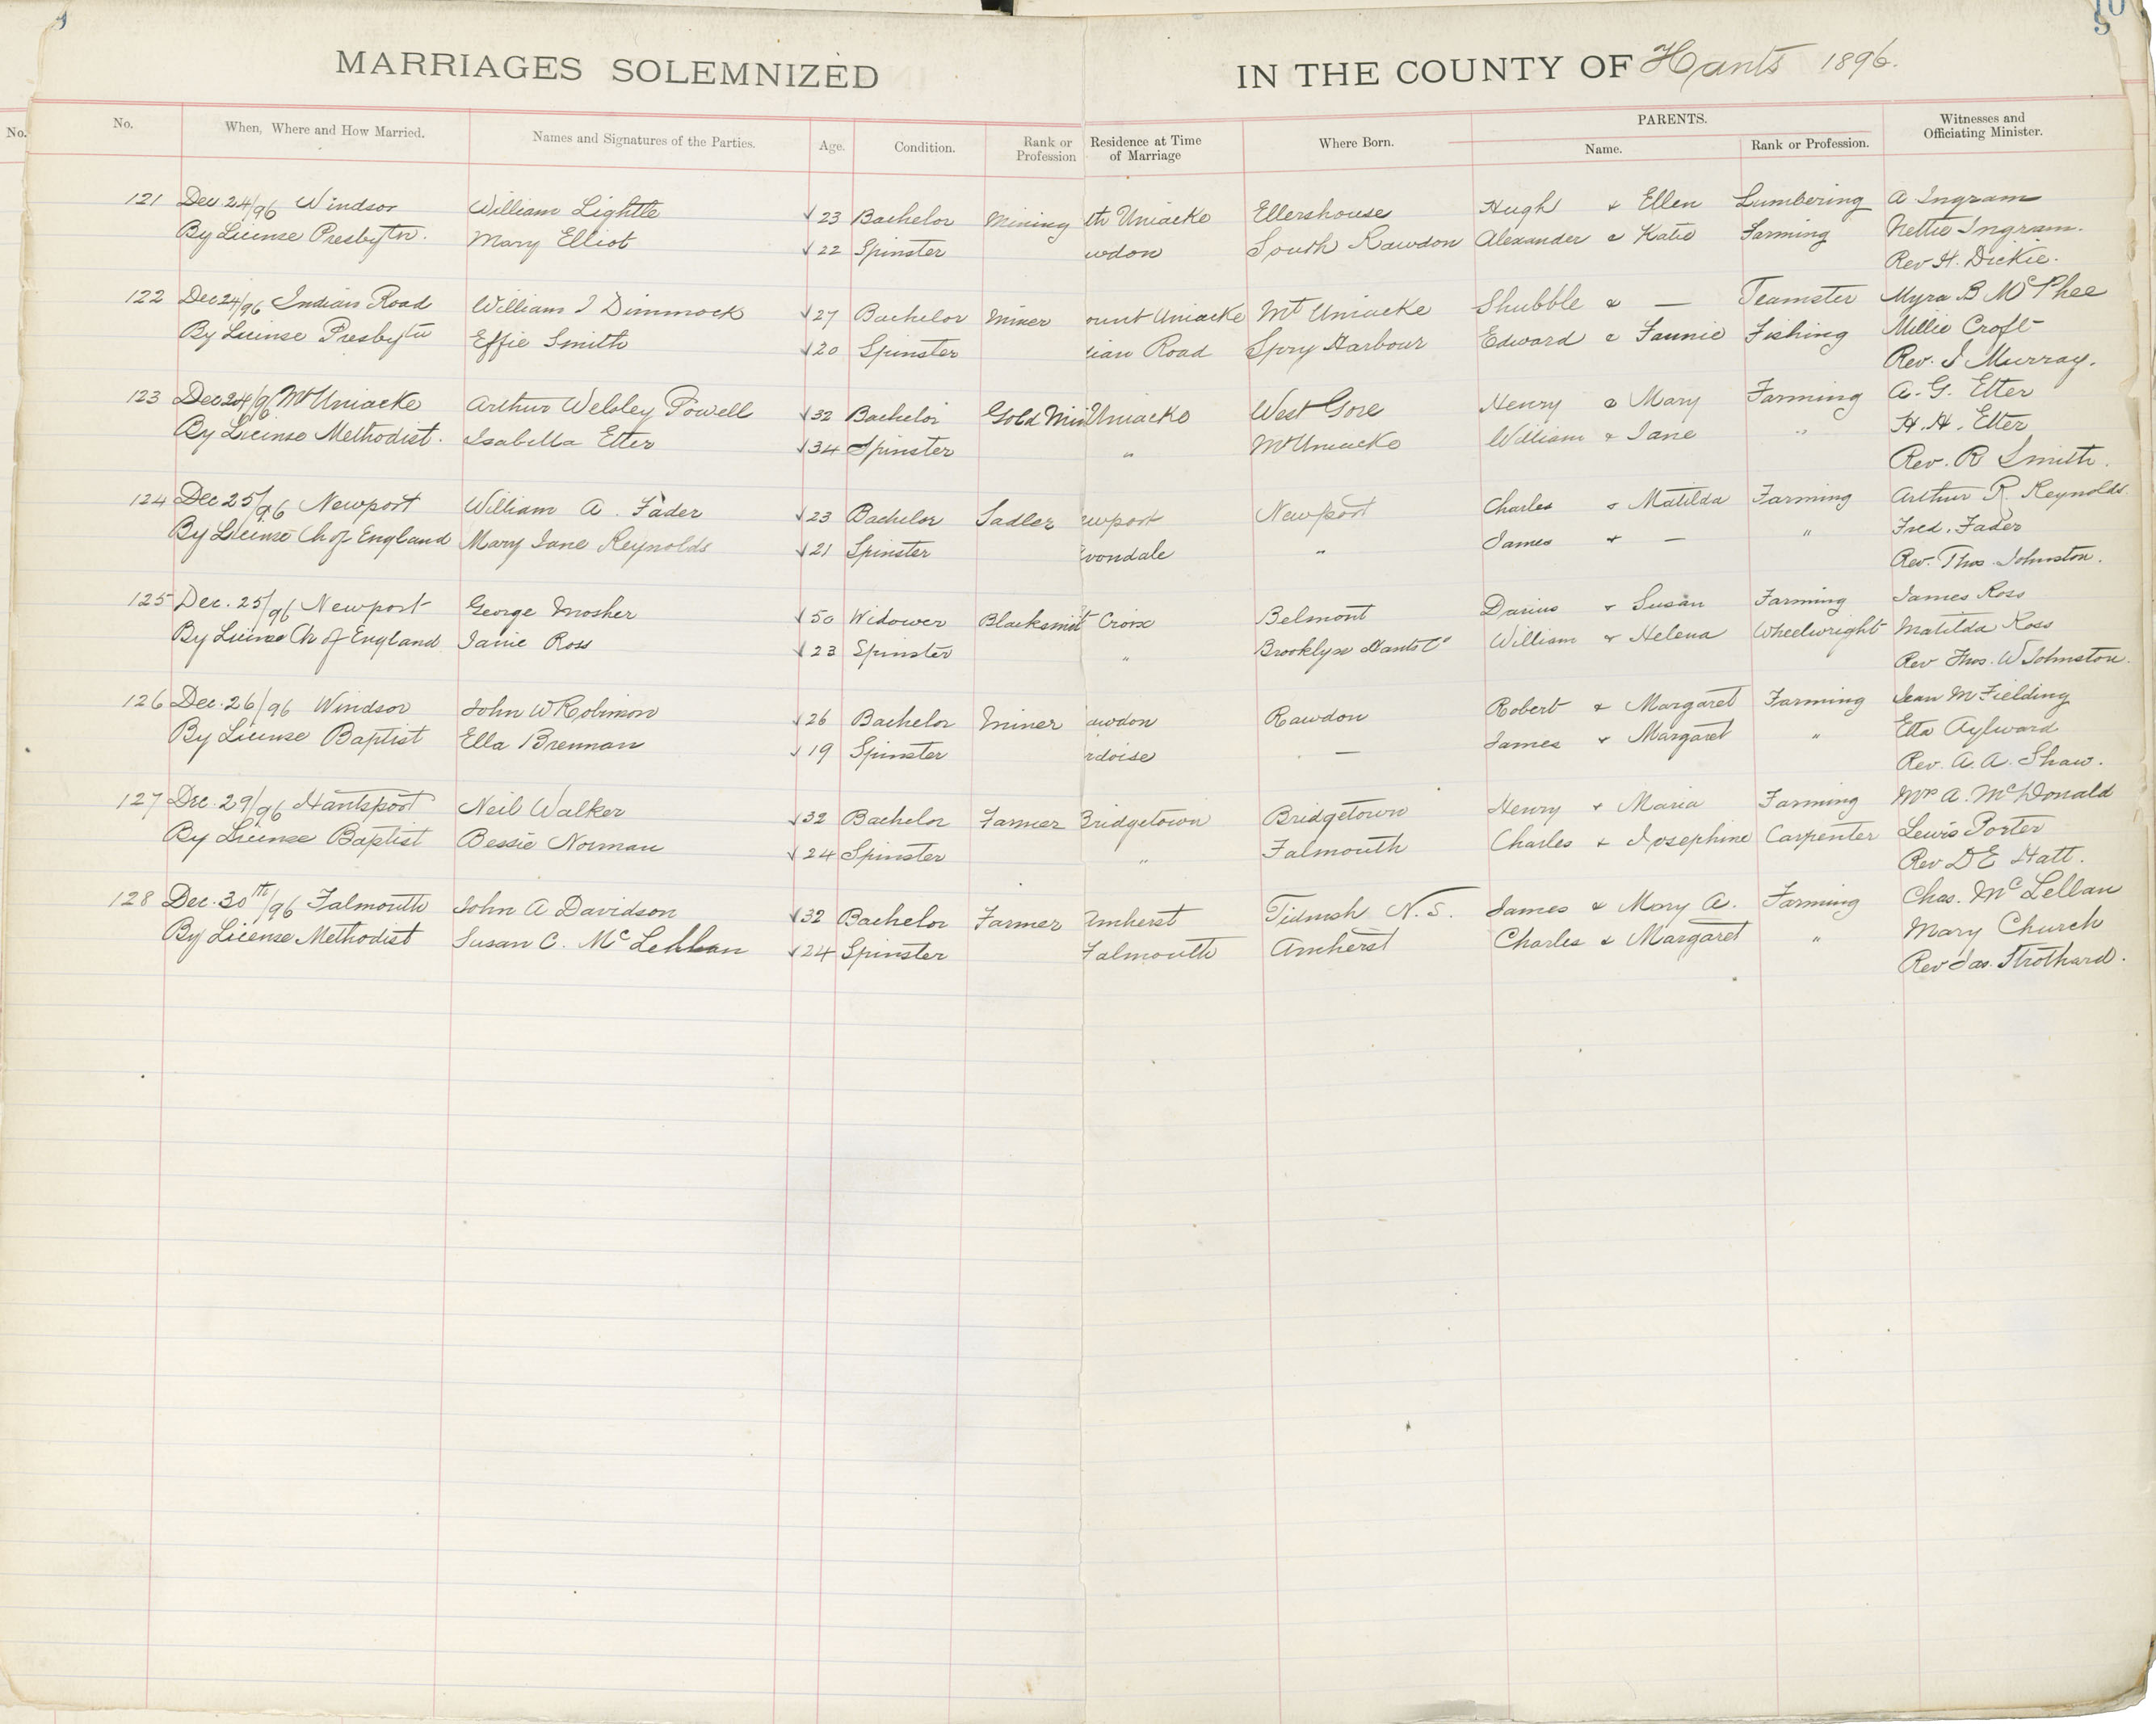 MARRIAGES SOLEMNIZED IN THE COUNTY OF Hants 1896.
No. No. When, Where and How Married. Names and Signatures of the Parties. Age. Condition. Rank or Profession Residence at Time of Marriage Where Born. PARENTS. Name. Rank or Profession. Witnesses and Officiating Minister.
121 Dec 24/96 Windsor William Lightle √23 Bachelor Mining th Uniacke Ellershouse Hugh & Ellen Lumbering A Ingram
By License Presbytn. Mary Elliot √22 Spinster wdon South Rawdon Alexander & Katie Farming Nettie Ingram.
Rev H. Dickie.
122 Dec 24/96 Indian Road William J Dimmock √27 Bachelor Miner ount Uniacke Mt Uniacke Shubble & — Teamster Myra B McPhee
By License Presbytn Effie Smith √20 Spinster dian Road Spry Harbour Edward & Fannie Fishing Millie Croft
Rev. J Murray.
123 Dec 24/96 Mt Uniacke Arthur Welsley Powell √32 Bachelor Gold Min Uniacke West Gore Henry & Mary Farming A. G. Etter
By License Methodist. Isabella Etter √34 Spinster " Mt Uniacke William & Jane " H. H. Etter
Rev. R Smith.
124 Dec 25/96 Newport William A. Fader √23 Bachelor Sadler ewport Newport Charles & Matilda Farming Arthur R. Reynolds
By License Ch of England Mary Jane Reynolds √21 Spinster vondale " James & — " Fred. Fader
Rev. Thos. Johnston.
125 Dec. 25/96 Newport George Mosher √50 Widower Blacksmit t Croix Belmont Darius & Susan Farming James Ross
By License Ch of England Janie Ross √23 Spinster " Brooklyn Hants Co William & Helena Wheelwright Matilda Ross
Rev Thos. W Johnston.
126 Dec. 26/96 Windsor John W Robinson √26 Bachelor Miner awdon Rawdon Robert & Margaret Farming Jean M Fielding
By License Baptist Ella Brennan √19 Spinster rdoise — James & Margaret " Etta Aylward
Rev. A. A. Shaw.
127 Dec. 29/96 Hantsport Neil Walker √32 Bachelor Farmer Bridgetown Bridgetown Henry & Maria Farming Mrs A. McDonald
By License Baptist Bessie Norman √24 Spinster " Falmouth Charles & Josephine Carpenter Lewis Porter
Rev D E Hatt.
128 Dec. 30th/96 Falmouth John A Davidson √32 Bachelor Farmer Amherst Tidnish N. S. James & Mary A. Farming Chas. McLellan
By License Methodist Susan C. McLellan √24 Spinster Falmouth Amherst Charles & Margaret " Mary Church
Rev Jas. Strothard.